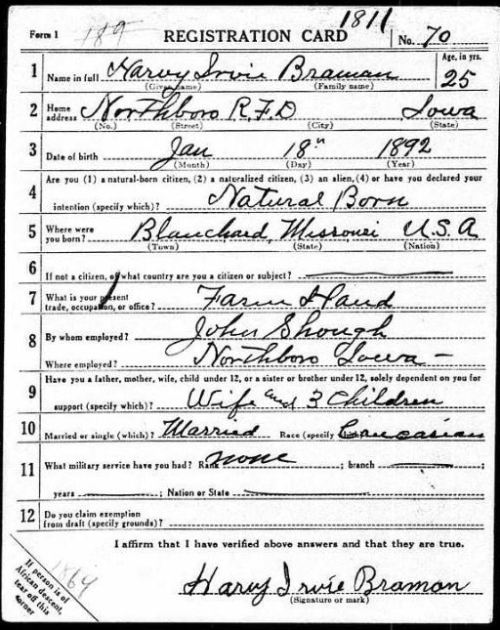 1811
Form 1 189 REGISTRATION CARD No. 70
1 Name in full Harvy Irvie Braman Age, in yrs. 25
(Given name) (Family name)
2 Home address Northboro R.F.D Iowa
(No.) (Street) (City) (State)
3 Date of birth Jan 18th 1892
(Month) (Day) (Year)
4 Are you (1) a natural-born citizen, (2) a naturalized citizen, (3) an alien, (4) or have you declared your
intention (specify which)? Natural Born
5 Where were you born? Blanchard, Missouri U.S.A
(Town) (State) (Nation)
6 If not a citizen, of what country are you a citizen or subject?
7 What is your present trade, occupation, or office? Farm Hand
8 By whom employed? John Shough
Where employed? Northboro Iowa
9 Have you a father, mother, wife, child under 12, or a sister or brother under 12, solely dependent on you for
support (specify which)? Wife and 3 Children
10 Married or single (which)? Married Race (specify Caucasian
11 What military service have you had? Rank none ; branch ;
years ; Nation or State
12 Do you claim exemption
from draft (specify grounds)?
I affirm that I have verified above answers and that they are true.
Harvy Irvie Braman
(Signature or mark)
If person is of
African descent,
tear off this
corner